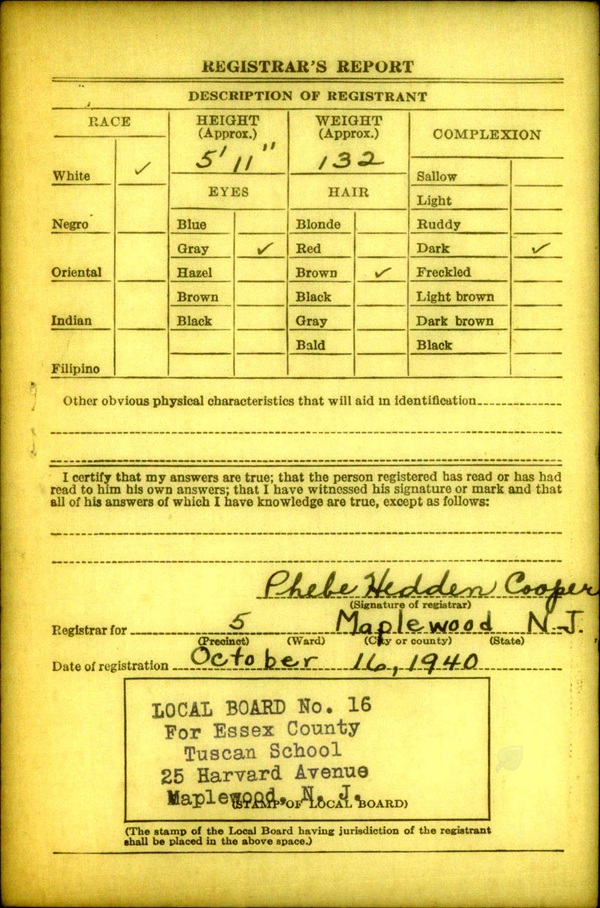 REGISTRAR'S REPORT
DESCRIPTION OF REGISTRANT
RACE
HEIGHT
(Approx.)
WEIGHT
(Approx.)
COMPLEXION
5' 11"
132
White ✓
Sallow
EYES
HAIR
Light
Negro
Blue
Blonde
Ruddy
Gray ✓
Red
Dark ✓
Oriental
Hazel
Brown ✓
Freckled
Brown
Black
Light brown
Indian
Black
Gray
Dark brown
Bald
Black
Filipino
Other obvious physical characteristics that will aid in identification
I certify that my answers are true; that the person registered has read or has had
read to him his own answers; that I have witnessed his signature or mark and that
all of his answers of which I have knowledge are true, except as follows:
Phebe Hedden Cooper
(Signature of registrar)
Registrar for 5 Maplewood N.J.
(Precinct) (Ward) (City or county) (State)
Date of registration October 16, 1940
LOCAL BOARD No. 16
For Essex County
Tuscan School
25 Harvard Avenue
Maplewood, N. J.
(STAMP OF LOCAL BOARD)
(The stamp of the Local Board having jurisdiction of the registrant
shall be placed in the above space.)